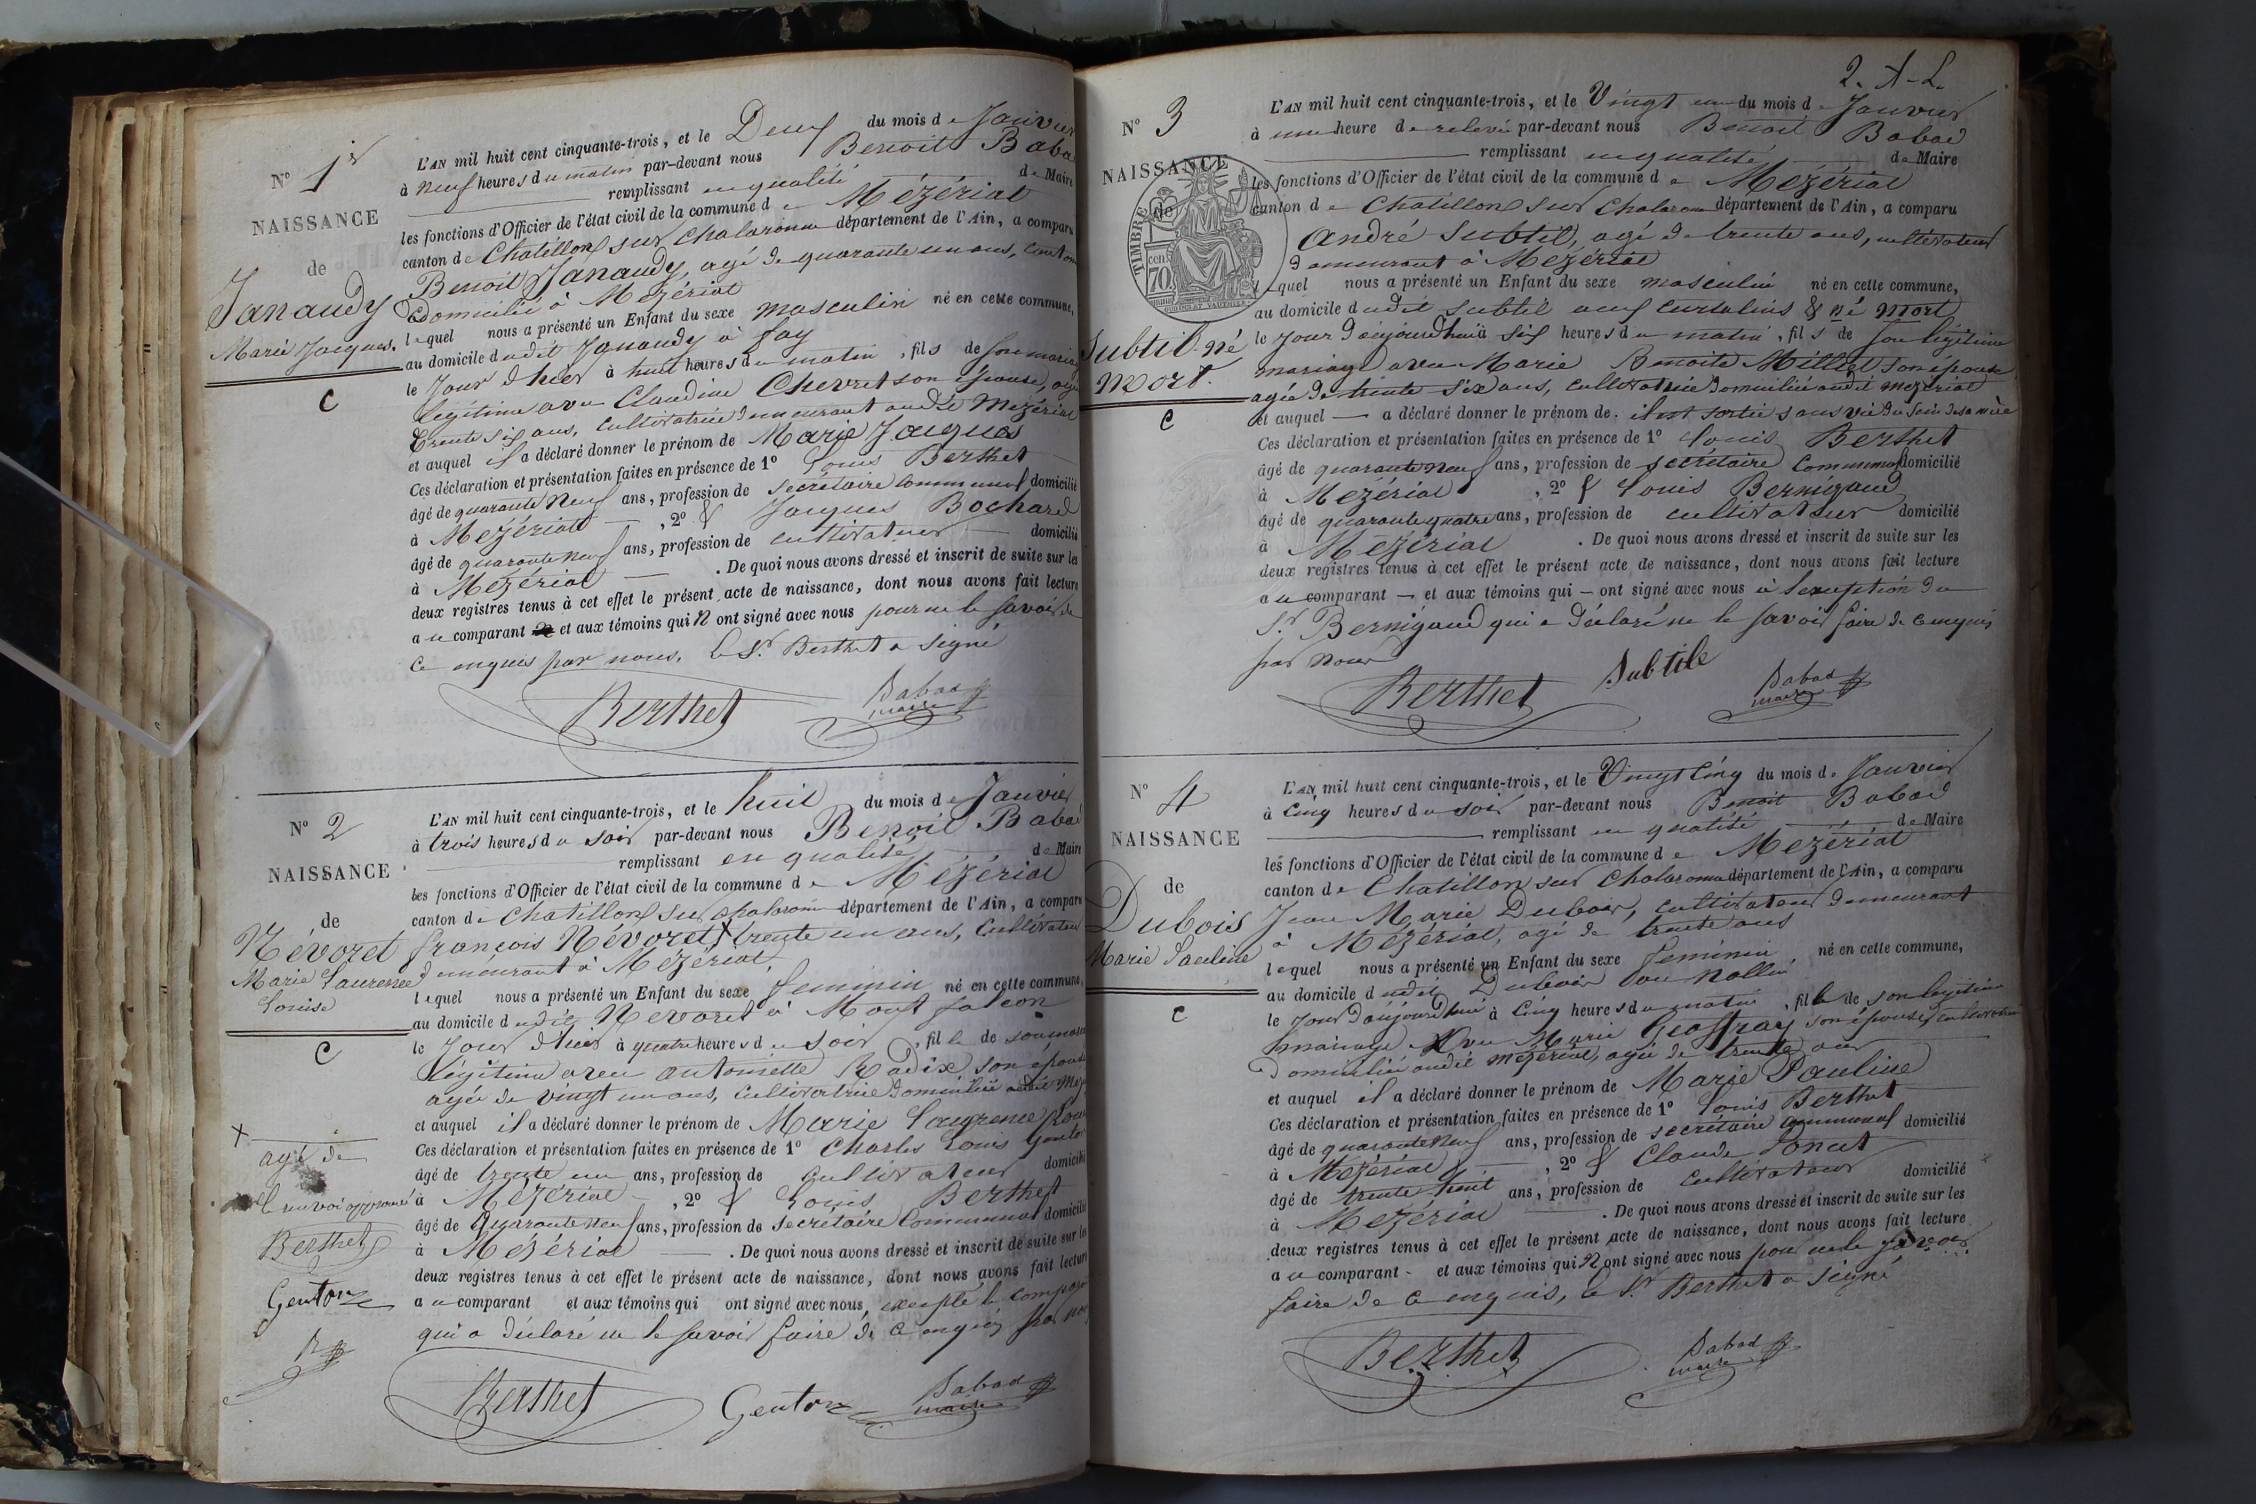 N° 1er
NAISSANCE
de
Janaudy
Marie Jacques.
C
L'AN mil huit cent cinquante-trois, et le Deux du mois de Janvier
à neuf heures du matin par-devant nous Benoit Babad
remplissant en qualité de Maire
les fonctions d'Officier de l'état civil de la commune de Mézériat
canton de Chatillon sur Chalaronne département de l'Ain, a comparu
Benoit Janaudy, agé de quarante un ans,
Domicilié à Mézériat
lequel nous a présenté un Enfant du sexe masculin né en cette commune,
au domicile dudit Janaudy à fay
le Jour d'hier à huit heures du matin, fils de son mariage
légitime avec Claudine Chevret son épouse, agée
trente six ans, cultivatrice demeurant audit Mézériat
et auquel il a déclaré donner le prénom de Marie Jacques
Ces déclaration et présentation faites en présence de 1° Louis Berthet
âgé de quarante neuf ans, profession de secrétaire communal domicilié
à Mézériat, 2° & Jacques Bochard
âgé de quarante neuf ans, profession de cultivateur domicilié
à Mézériat. De quoi nous avons dressé et inscrit de suite sur les
deux registres tenus à cet effet le présent acte de naissance, dont nous avons fait lecture
au comparant et aux témoins qui n ont signé avec nous pour ne le savoir de
ce enquis par nous, le Sr. Berthet a signé
Berthet Babad
maire
N° 2
NAISSANCE
de
Névoret
Marie Laurence
Louise
C
L'AN mil huit cent cinquante-trois, et le huit du mois de Janvier
à trois heures du soir par-devant nous Benoit Babad
remplissant en qualité de Maire
les fonctions d'Officier de l'état civil de la commune de Mézériat
canton de Chatillon sur Chalaronne département de l'Ain, a comparu
françois Névoret, X trente un ans, Cultivateur
demeurant à Mézériat,
lequel nous a présenté un Enfant du sexe feminin né en cette commune,
au domicile dudit Nevoret à Mont falcon
le Jour d'hier à quatre heures du soir, fille de son mariage
légitime avec antoinette Radix son épouse
agée de vingt un ans, cultivatrice domiciliée audit
et auquel il a déclaré donner le prénom de Marie Laurence Louise
Ces déclaration et présentation faites en présence de 1° Charles Louis Genton
âgé de trente un ans, profession de cultivateur domicilié
à Mézériat, 2° & Louis Berthet
âgé de Quarante neuf ans, profession de secrétaire Communal domicilié
à Mézériat. De quoi nous avons dressé et inscrit de suite sur les
deux registres tenus à cet effet le présent acte de naissance, dont nous avons fait lecture
au comparant et aux témoins qui ont signé avec nous, excepté le comparant
qui a déclaré ne le savoir faire de ce enquis par nous
Berthet Genton Babad
maire
X
agé de
renvoi approuvé
Berthet
Genton
B
2. A-L.
N° 3
NAISSANCE
de
TIMBRE
70
Subtil né
mort.
C
L'AN mil huit cent cinquante-trois, et le Vingt un du mois de Janvier
à une heure de relevée par-devant nous Benoit Babad
remplissant en qualité de Maire
les fonctions d'Officier de l'état civil de la commune de Mézériat
canton de Chatillon sur Chalaronne département de l'Ain, a comparu
André Subtil, agé de trente ans, cultivateur
demeurant à Mézériat
lequel nous a présenté un Enfant du sexe masculin né en cette commune,
au domicile dudit Subtil aux curtelins & né mort
le jour d'aujourd'hui à six heures du matin, fils de son légitime
mariage avec Marie Benoite Milliet son épouse
agée de trente six ans, cultivatrice domiciliée audit mezériat
et auquel a déclaré donner le prénom de. il est sortie sans vie du sein de sa mère
Ces déclaration et présentation faites en présence de 1° Louis Berthet
âgé de quarante neuf ans, profession de secrétaire communal domicilié
à Mézériat, 2° & Louis Bernigaud
âgé de quarante quatre ans, profession de cultivateur domicilié
à Mézériat. De quoi nous avons dressé et inscrit de suite sur les
deux registres tenus à cet effet le présent acte de naissance, dont nous avons fait lecture
au comparant et aux témoins qui ont signé avec nous à l'exeption du
Sr. Bernigaud qui a déclaré ne le savoir faire de ce enquis
par nous
Berthet Subtile Babad
maire
N° 4
NAISSANCE
de
Dubois
Marie Pauline
C
L'AN mil huit cent cinquante-trois, et le Vingt Cinq du mois de Janvier
à Cinq heures du soir par-devant nous Benoit Babad
remplissant en qualité de Maire
les fonctions d'Officier de l'état civil de la commune de Mézériat
canton de Chatillon sur Chalaronne département de l'Ain, a comparu
Jean Marie Dubois, cultivateur demeurant
à Mézériat, agé de trente ans
lequel nous a présenté un Enfant du sexe feminin né en cette commune,
au domicile dudit Dubois au
le Jour d'aujourd'hui à Cinq heures du matin, fille de son légitime
mariage avec Marie Geoffray son épouse, cultivatrice
domiciliée audit mézériat, agée de trente ans
et auquel il a déclaré donner le prénom de Marie Pauline
Ces déclaration et présentation faites en présence de 1° Louis Berthet
âgé de quarante neuf ans, profession de secrétaire communal domicilié
à Mézériat, 2° & Claude Poncet
âgé de trente huit ans, profession de cultivateur domicilié
à Mézériat. De quoi nous avons dressé et inscrit de suite sur les
deux registres tenus à cet effet le présent acte de naissance, dont nous avons fait lecture
au comparant et aux témoins qui n ont signé avec nous pour ne le savoir
faire de ce enquis, le Sr. Berthet a signé
Berthet Babad
maire